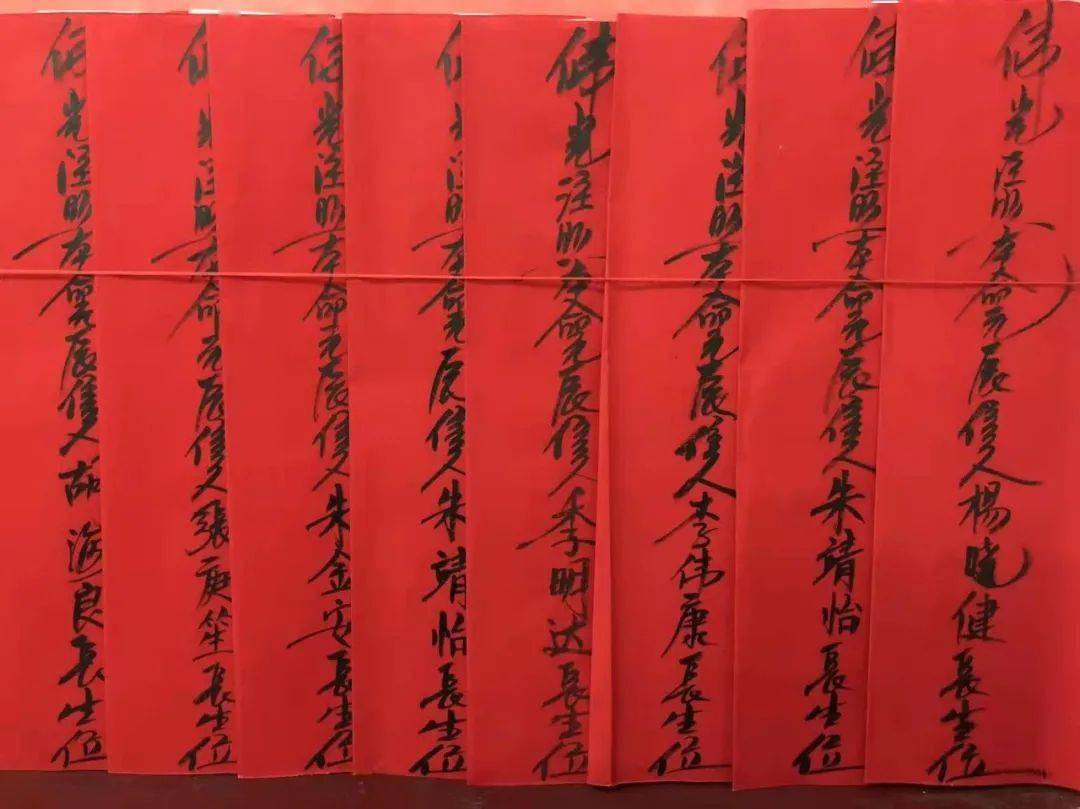 佛光注照本命元辰信人楊晓健長生位
佛光注照本命元辰信人朱靖怡長生位
佛光注照本命元辰信人李伟康長生位
佛光注照本命元辰信人季明达長生位
佛光注照本命元辰信人朱靖怡長生位
佛光注照本命元辰信人朱金安長生位
佛光注照本命元辰信人張庚笙長生位
佛光注照本命元辰信人胡海良長生位